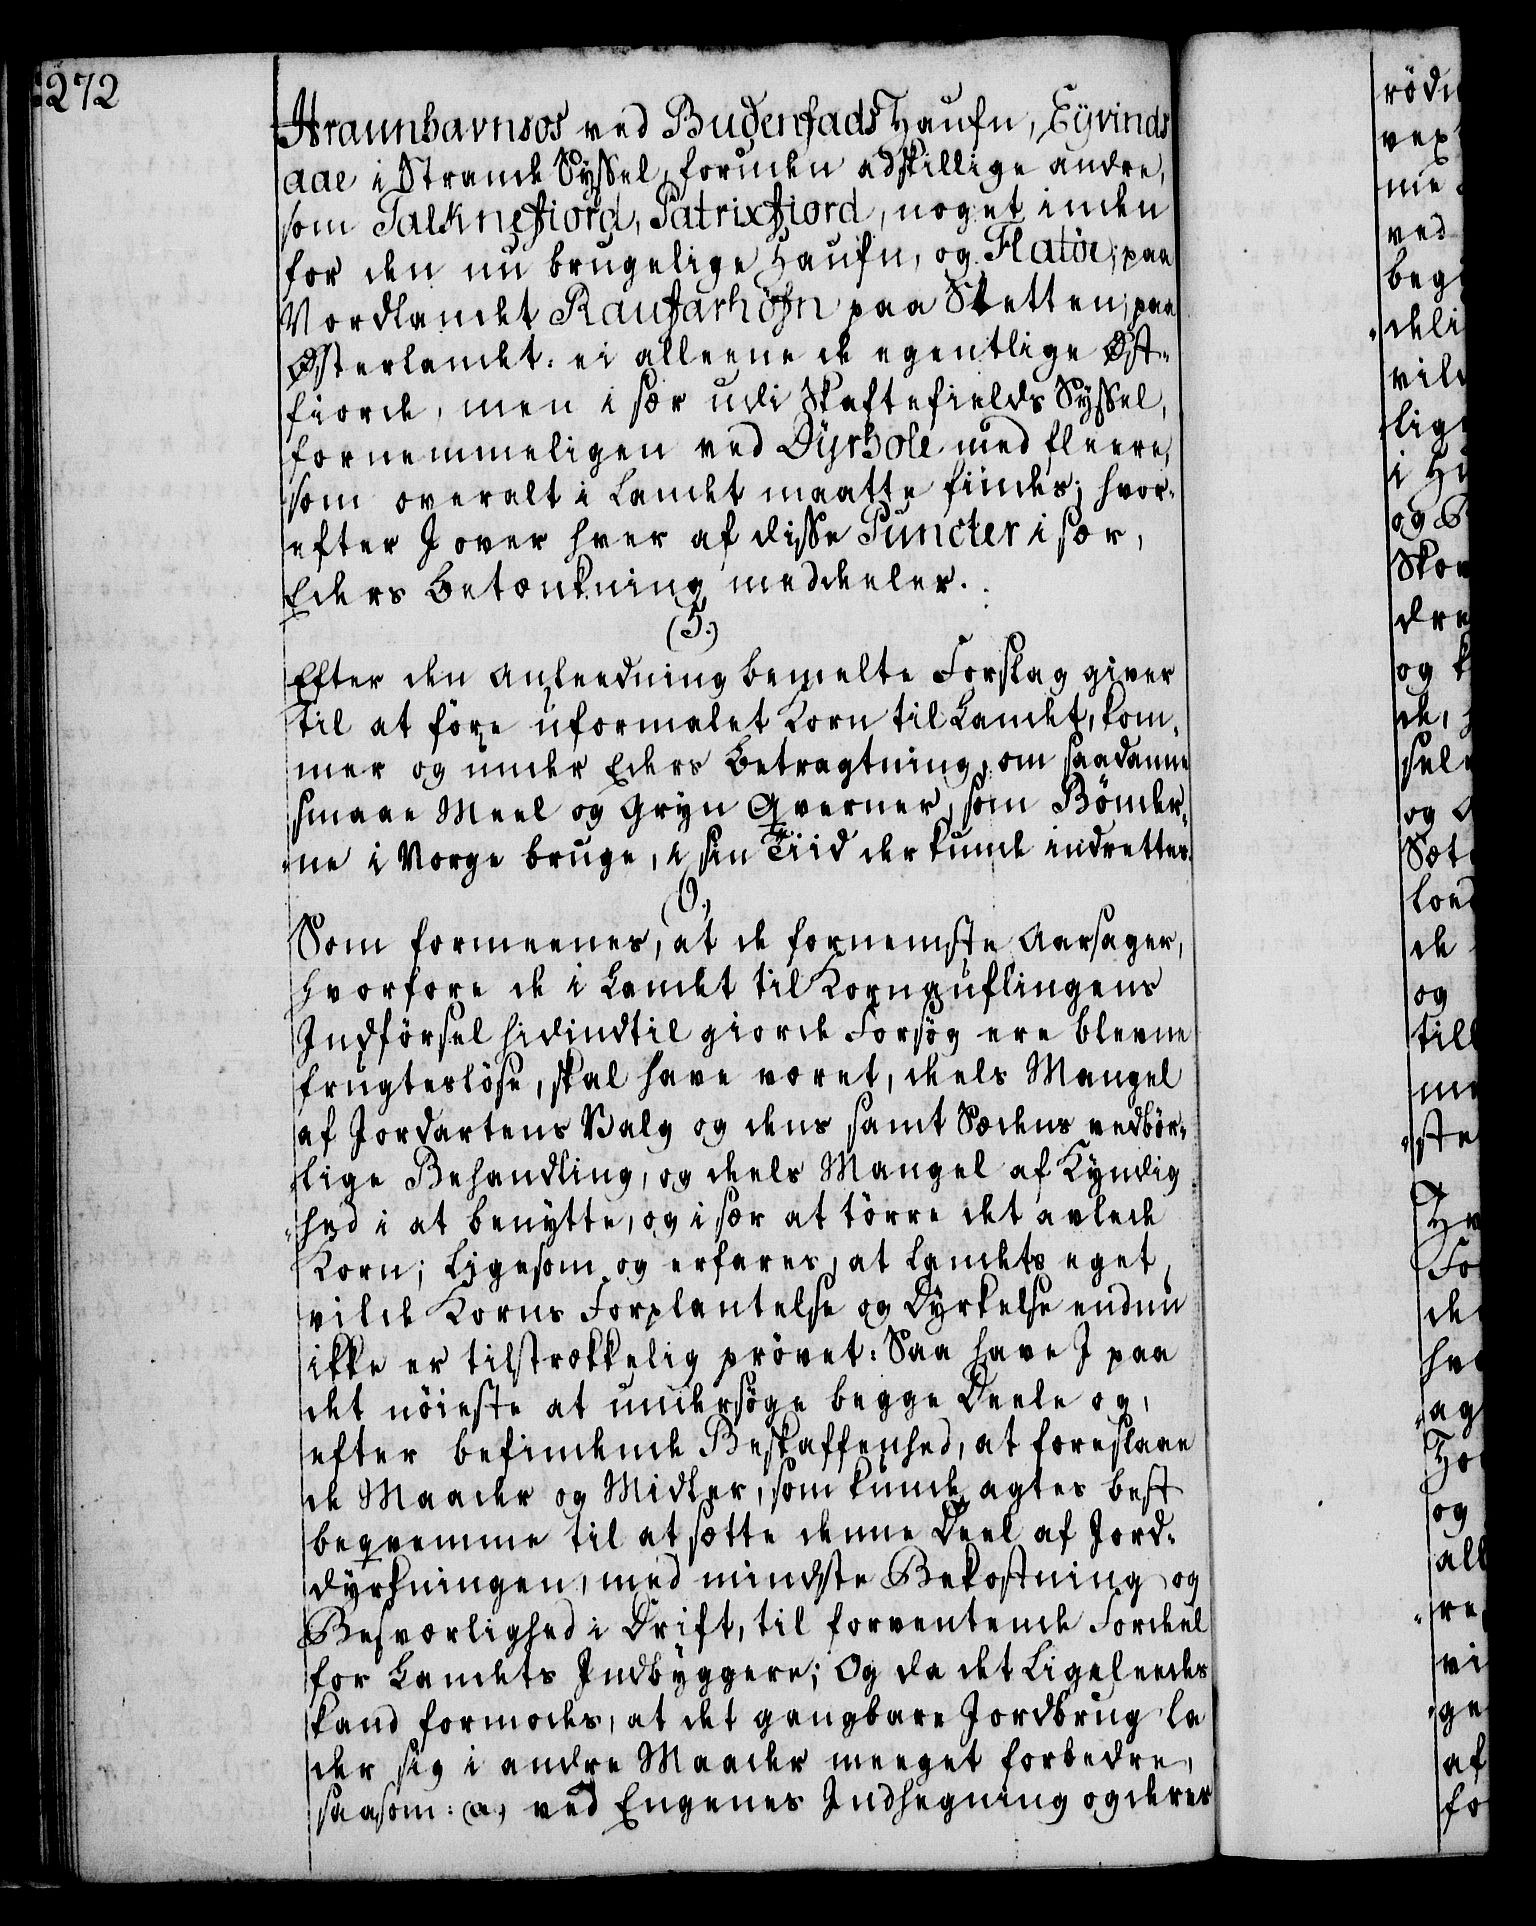 272
Hraunhavnsos ved Budenstads Haufn, Eyvinds
aae i Strande Syssel, foruden adskillige andre,
som Talknefiord, Patrixfiord, noget inden
for den nu brugelige Haufn, og Flatöe; paa
Nordlandet Raufarhöfn paa Sletten; paa
Østerlandet: ei alleene de egentlige Øst-
fiorde, men i sær udi Skaftefields Syssel,
fornemmeligen ved Dyrhole med fleere,
som overalt i Landet maatte findes; hvor-
efter I over hver af disse Puncter i sær,
Eders Betænkning meddeeler.
(5.)
Efter den Anleedning bemelte Forslag giver
til at före uformalet Korn til Landet, kom-
mer og under Eders Betragtning, om saadanne
smaae Meel og Gryn Qverner, som Bönder-
ne i Norge bruge, i sin Tiid der kunde indrettes.
6.
Som formeenes, at de fornemste Aarsager,
hvorfore de i Landet til Kornauflingens
Indförsel hidindtil giorde Forsög ere blevne
frugteslöse, skal have været, deels Mangel
af Jordartens Valg og dens samt Sædens vedbör-
lige Behandling, og deels Mangel af Kyndig
hed i at benytte, og i sær at törre det avlede
Korn; Ligesom og erfares, at Landets eget
vilde Korns Forplantelse og Dyrkelse endnu
ikke er tilstrækkelig prövet: Saa have I paa
det nöieste at undersöge begge Deele og,
efter befindende Beskaffenhed, at foreslaae
de Maader og Midler, som kunde agtes best
beqvemme til at sætte denne Deel af Jord-
dyrkningen, med mindste Bekostning og
Besværlighed i Drift, til forventende Fordeel
for Landets Indbyggere; Og da det Ligeleedes
kand formodes, at det gangbare Jordbrug la
der sig i andre Maader meeget forbedre,
saasom: (a.) ved Engenes Indhegning og deres